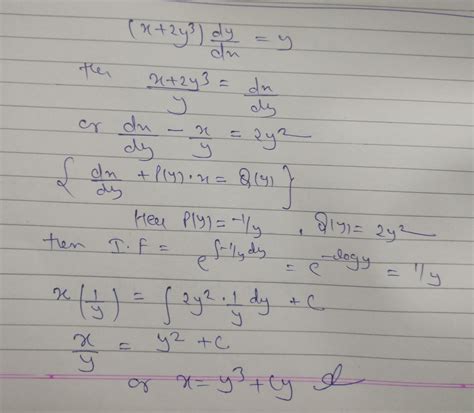 (x+2y³) dy/dx = y
then x+2y³/y = dx/dy
or dx/dy - x/y = 2y²
{ dx/dy + P(y)·x = Q(y) }
Here P(y) = -1/y , Q(y) = 2y²
then I.F = e^∫-1/y dy = e^-logy = 1/y
x(1/y) = ∫ 2y² · 1/y dy + C
x/y = y² + C
or x = y³ + Cy